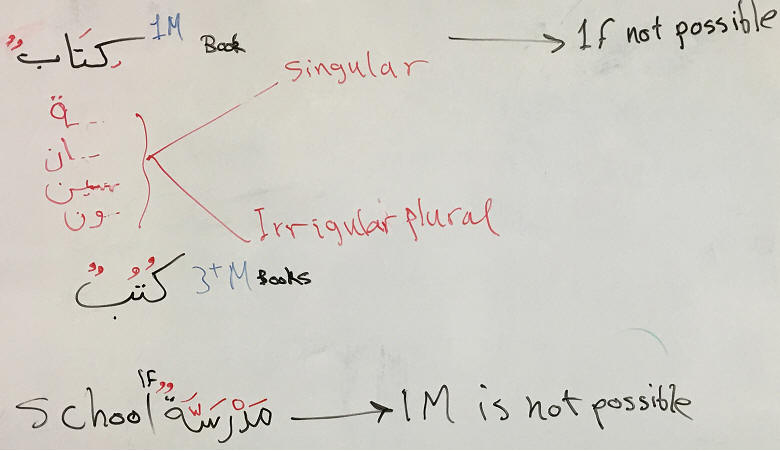 كِتَابٌ 1M Book → 1f not possible
singular
ـة
ـان
ـين
ـون
Irrigular plural
كُتُبٌ 3+M Books
School 1F مَدْرَسَةٌ → 1M is not possible